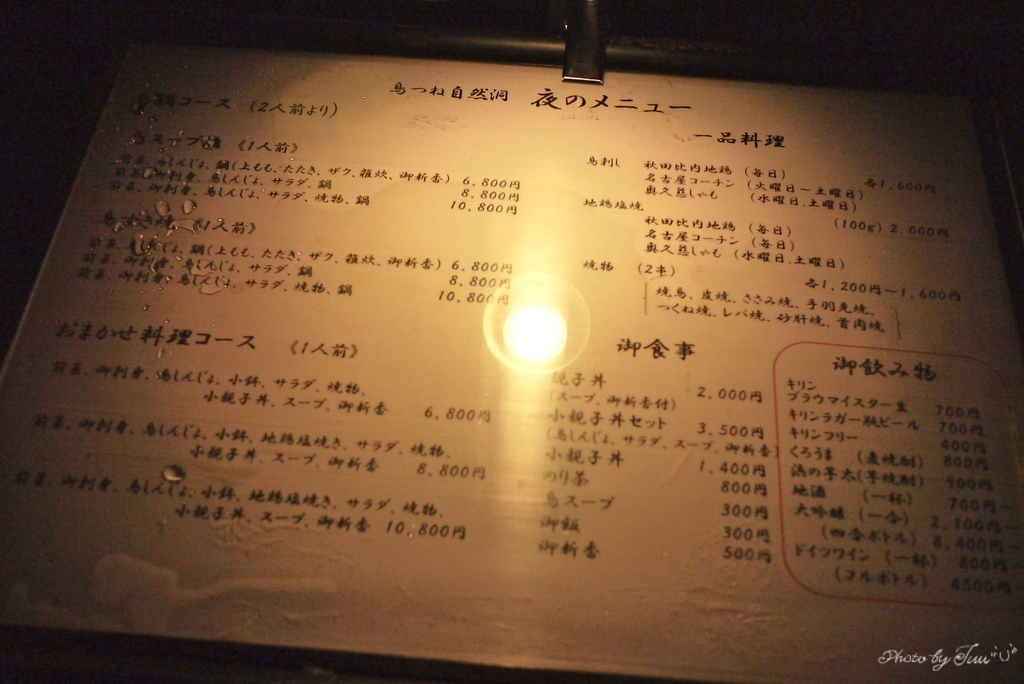 鳥つね自然洞 夜のメニュー
鍋コース (2人前より)
《1人前》
前菜、鳥しんじょ、鍋(上もも、たたき、ザク、雑炊、御新香) 6,800円
前菜、御刺身、鳥しんじょ、サラダ、鍋 8,800円
前菜、御刺身、鳥しんじょ、サラダ、焼物、鍋 10,800円
鳥すき焼 《1人前》
前菜、鳥しんじょ、鍋(上もも、たたき、ザク、雑炊、御新香) 6,800円
前菜、御刺身、鳥しんじょ、サラダ、鍋 8,800円
前菜、御刺身、鳥しんじょ、サラダ、焼物、鍋 10,800円
おまかせ料理コース 《1人前》
前菜、御刺身、鳥しんじょ、小鉢、サラダ、焼物、
小親子丼、スープ、御新香 6,800円
前菜、御刺身、鳥しんじょ、小鉢、地鶏塩焼き、サラダ、焼物、
小親子丼、スープ、御新香 8,800円
前菜、御刺身、鳥しんじょ、小鉢、地鶏塩焼き、サラダ、焼物、
小親子丼、スープ、御新香 10,800円
一品料理
鳥刺し 秋田比内地鶏 (毎日) 各1,600円
名古屋コーチン (火曜日〜土曜日)
奥久慈しゃも (水曜日、土曜日)
地鶏塩焼 (100g) 2,000円
秋田比内地鶏 (毎日)
名古屋コーチン (毎日)
奥久慈しゃも (水曜日、土曜日)
焼物 (2串) 各1,200円〜1,600円
焼鳥、皮焼、ささみ焼、手羽先焼、
つくね焼、レバ焼、砂肝焼、首肉焼
御食事
親子丼 2,000円
(スープ、御新香付)
小親子丼セット 3,500円
(鳥しんじょ、サラダ、スープ、御新香)
小親子丼 1,400円
のり茶 800円
鳥スープ 300円
御飯 300円
御新香 500円
御飲み物
キリン
ブラウマイスター生 700円
キリンラガー瓶ビール 700円
キリンフリー 400円
くろうま (麦焼酎) 800円
浜の芋太(芋焼酎) 900円
地酒 (一杯) 700円〜
大吟醸 (一合) 2,100円〜
(四合ボトル) 8,400円〜
ドイツワイン (一杯) 800円〜
(フルボトル) 4500円〜
Photo by